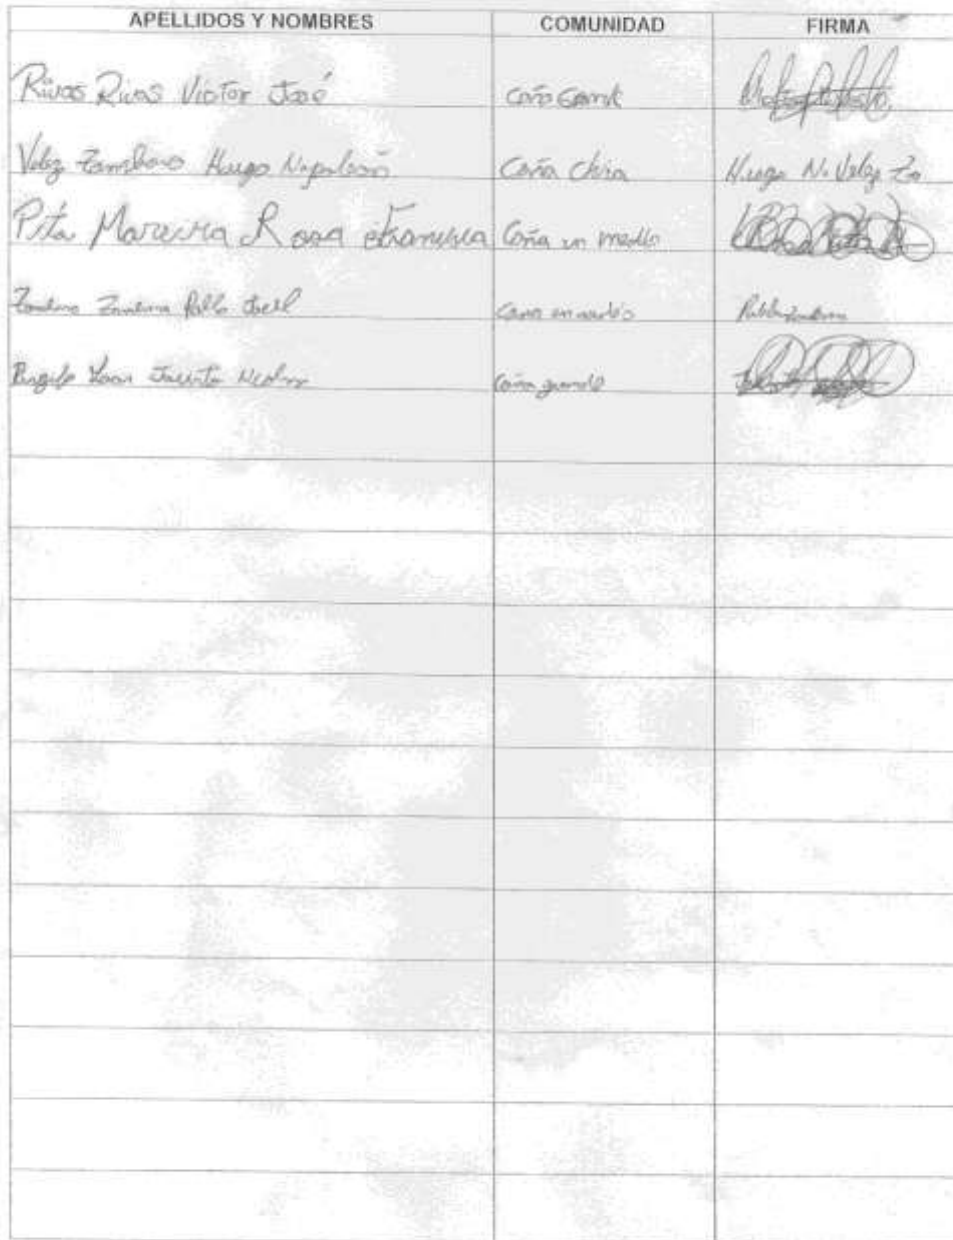 APELLIDOS Y NOMBRES COMUNIDAD FIRMA
Rivas Rivas Victor José Caña Grande
Velez Zambrano Hugo Napoleón Caña Chica Hugo N. Velez Za.
Pita Moreira Rosa Francisca Caña en medio
Zambrano Pablo Joell Caña en medio Pablo Zambrano
Jacinto Caña grande